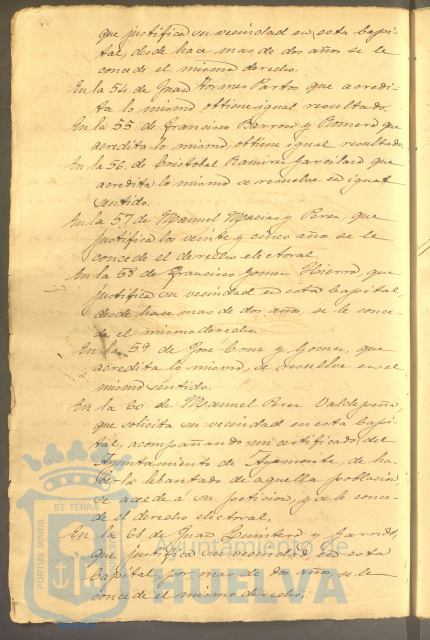 que justifica su vecindad en esta Capi-
tal, desde hace mas de dos años se le
concede el mismo derecho.
En la 54 de Juan Hormes Partos que acredi-
ta lo mismo obtiene igual resultado.
En la 55 de Francisco Barroso y Romero que
acredita lo mismo obtiene igual resultado.
En la 56 de Cristobal Ramirez Garcilazo que
acredita lo mismo se resuelve en igual
sentido.
En la 57 de Manuel Macias y Perez, que
justifica los veinte y cinco años se le
concede el derecho electoral.
En la 58 de Francisco Gomez Hierro, que
justifica su vecindad en esta Capital,
desde hace mas de dos años, se le conce-
de el mismo derecho.
En la 59 de José Cruz y Gomez, que
acredita lo mismo, se resuelve en el
mismo sentido.
En la 60 de Manuel Perez Valdepeña,
que solicita su vecindad en esta Capi-
tal, acompañando un certificado del
Ayuntamiento de Ayamonte, de ha-
berla lebantado de aquella poblacion
se accede á su peticion, y se le conce-
de el derecho electoral.
En la 61 de Juan Quintero y Garrido,
que justifica su vecindad en esta
Capital por mas de dos años se le
concede el mismo derecho.
PORTUS MARIS ET TERRA
Ayuntamiento de
HUELVA